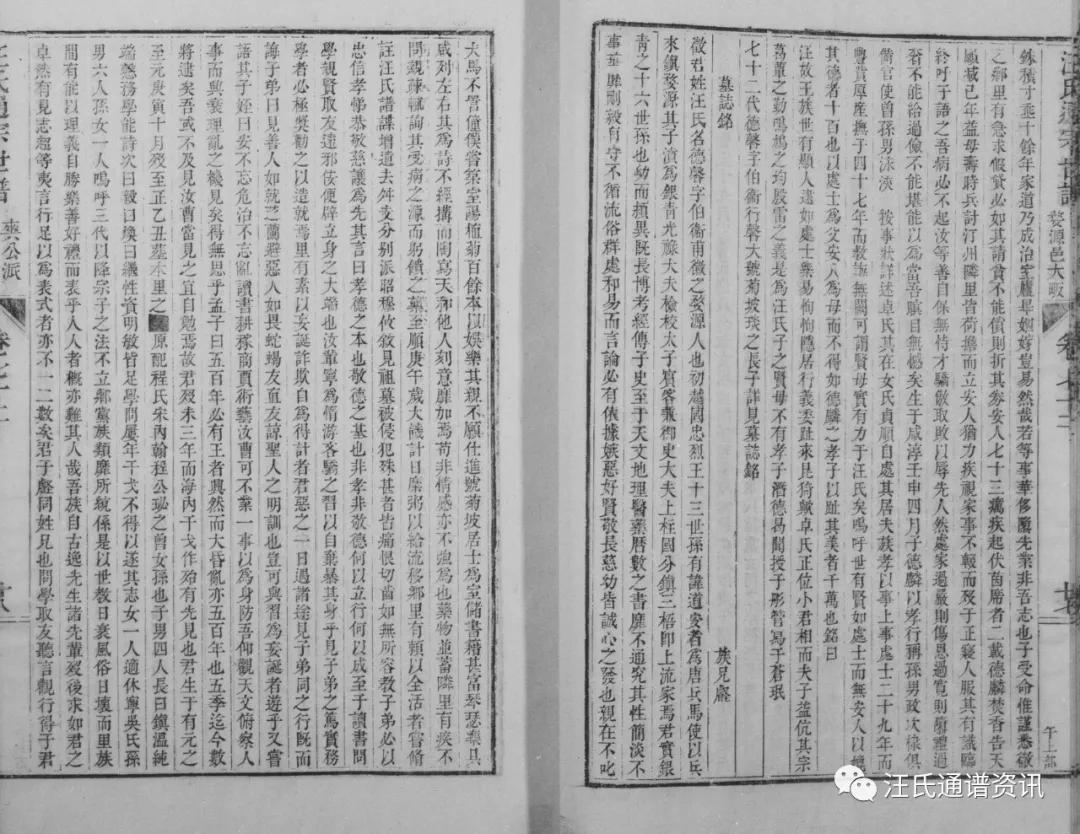 汪氏通宗世譜
婺源邑大畈
卷之七十二
銖積寸
十餘年家道乃成治室廬畢婣嫁豈易然哉若等事華侈隳先業非吾志也子受命惟謹悉散
之鄉里有急求假貸必如其請貧不能償則折其券安人七十三
疾起伏茵席者二載德麟焚香告天
願減己年益母壽時兵討汀州隣里皆荷擔而立安人猶力疾視家事不報而歿于正寢人服其有識臨
終呼子語之吾病必不起汝等善自保無恃才驕
取敗以辱先人然處家過嚴則傷恩過寬則
禮過
奢不能給過儉不能堪能以為當吾瞑目無憾矣生于咸淳壬申四月子德麟以孝行稱孫男政次椂俱
衛官使曾孫男泳浹
按事狀詳述卓氏其在女氏貞順自處其居夫族孝以事上事處士二十九年而
豐資厚產撫于四十七年而教誨無闕可謂賢母實有力于汪氏矣嗚呼世有賢如處士而無安人以媲
其德者十百也以處士為父安人為母而不得如德麟之孝子以趾其美者千萬也銘曰
汪故王族世有顯人逮如處士樂易恂恂隱居行義委趾來見猗歟卓氏正位小君相而夫子益伉其宗
葛覃之勤鳲鳩之均殷雷之義是為汪氏子之賢母不有孝子潛德曷聞授子彤管寫于蒼珉
七十二代德馨字伯衞行馨大號菊坡琰之長子詳見墓誌銘
墓誌銘
族兄
徵君姓汪氏名德馨字伯衞甫徽之婺源人也初越國忠烈王十三世孫有諱道安者為唐兵馬使以兵
來鎮婺源其子濆為銀青光祿大夫檢校太子賓客兼御史大夫上柱國分鎮三梧即上流家焉君實銀
青之十六世孫也幼而穎異既長博考經傳子史至于天文地理醫藥曆數之書靡不通究其性簡淡不
事華靡剛毅有守不循流俗群處和易而言論必有依據嫉惡好賢敬長慈幼皆誠心之發也親在不叱
犬馬不笞僮僕嘗築室陽植菊百餘本以娛樂其親不願仕進號菊坡居士為堂儲書籍甚富琴瑟樂具
咸列左右其為詩不經搆而陶寫天和他人刻意靡如焉苟非情感亦不強為也藥物並蓄隣里有疾不
問親疎輒詢其受病之源而躬饋之藥至順庚午歲大饑計日糜粥以給流移鄉里有賴以全活者嘗脩
註汪氏譜譜增遺去舛支分別派昭穆攸敘見祖墓被侵犯殊甚者皆痛恨切齒如無所容教子弟必以
忠信孝悌恭敬慈讓為先其言曰孝德之本也敬德之基也非孝非敬德何以立行何以成至于讀書問
學親賢取友遠邪佞便辟立身之大端也汝輩寧為惰游客驕之習以自棄暴其身乎見子弟之篤實務
學者必極獎勸之以造就焉里有素以妄誕詐欺自為得計者君惡之一日過諸途見子弟同之行既而
誨子弟曰見善人如就芝蘭避惡人如畏蛇蝎友直友諒聖人之明訓也豈可與習為妄誕者遊乎又嘗
語其子姪曰安不忘危治不忘亂讀書耕稼商賈術藝汝曹可不業一事以為身防吾仰觀天文俯察人
事而興衰理亂之機見矣得無思乎孟子曰五百年必有王者興然而大昏亂亦五百年也五季迄今數
將逮矣吾或不及見汝曹當見之宜自勉焉故君歿未三年而海內干戈作殆有先見也君生于有元之
至元庚寅十月歿至正乙丑葬本里之
原配程氏宋內翰程公珌之曾女孫也子男四人長曰鎮溫純
端慤務學能詩次曰毅曰煥曰義性資明敏皆足學問屢年干戈不得以遂其志女一人適休寧吳氏孫
男六人孫女一人嗚呼三代以降宗子之法不立鄉黨族類靡所統係是以世教日衰風俗日壞而里族
間有能以理義自勝樂善好禮而表乎人人者概亦難其人哉吾族自古逸先生諸先輩歿後求如君之
卓然有見志超等夷言行足以為表式者亦不一二數矣君于
同姓兄也問學取友聽言觀行得于君
汪氏通宗世譜
爽公派
卷之七十二
汪氏通谱资讯